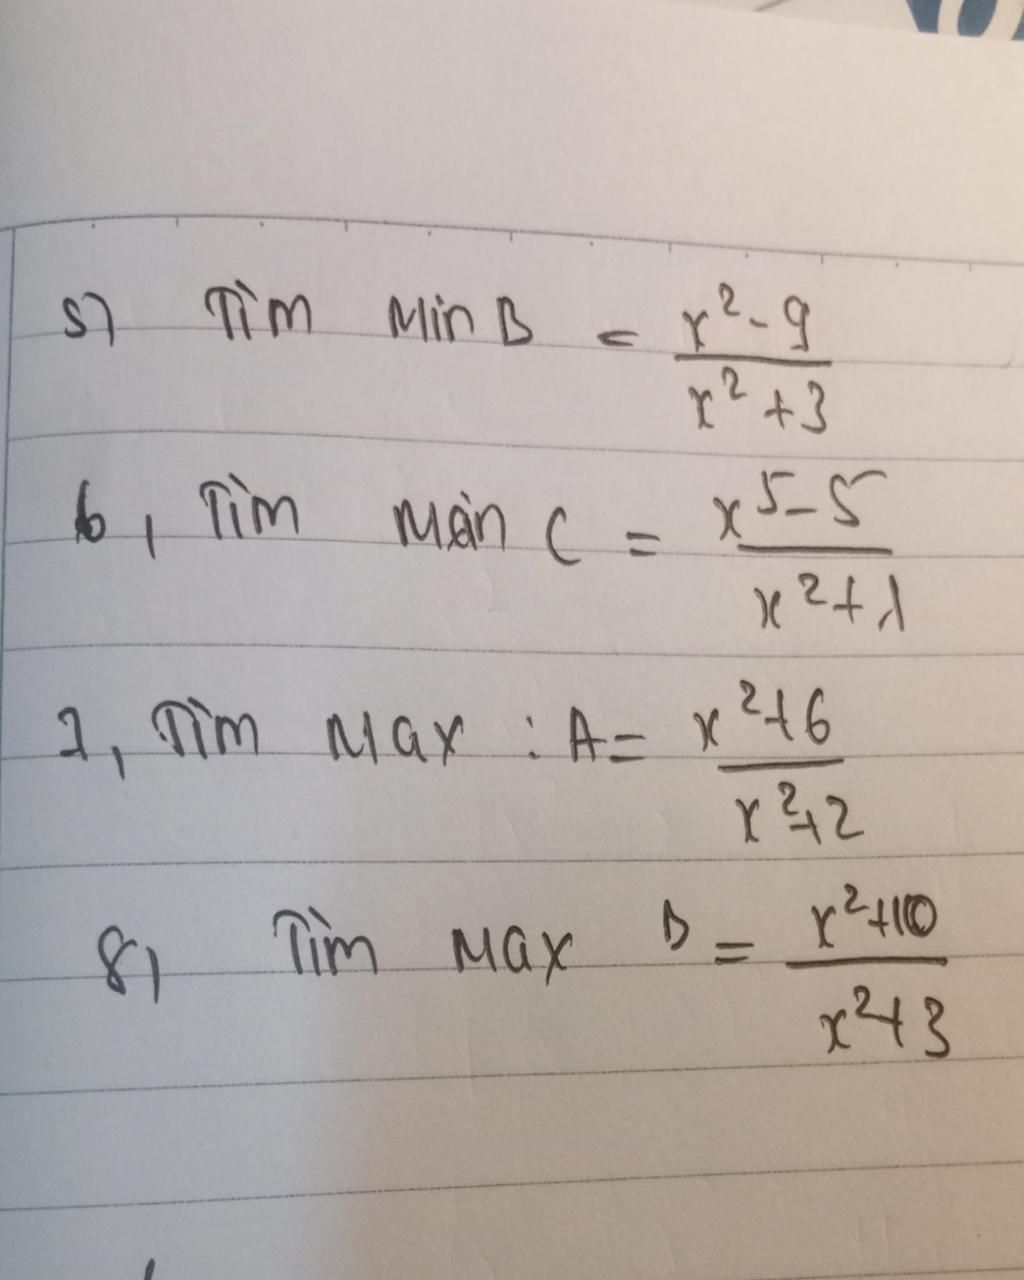 5) Tìm Min B = \frac{x^2-9}{x^2+3}
6, Tìm Min C = \frac{x^5-5}{x^2+1}
7, Tìm Max : A = \frac{x^2+6}{x^2+2}
8, Tìm Max B = \frac{x^2+10}{x^2+3}